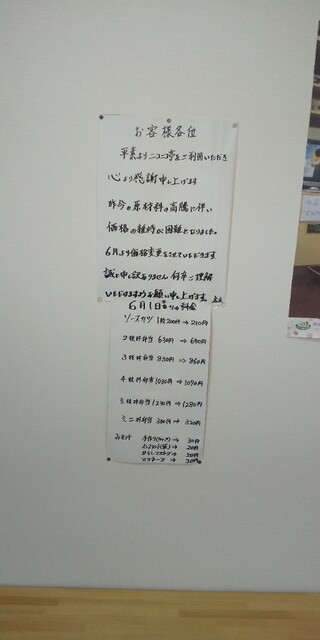 お客様各位
平素よりニコニコ亭をご利用いただき
心より感謝申し上げます
昨今の原材料の高騰に伴い
価格の維持が困難となりました
6月より価格変更をさせていただきます
誠に申し訳ありません 何卒ご理解
いただけますようお願い申し上げます 店主
6月1日よりの料金
ソースカツ 1枚200円→210円
2枚丼弁当 630円→650円
3枚丼弁当 830円→860円
4枚丼弁当 1030円→1070円
5枚丼弁当 1230円→1280円
ミニ丼弁当 300円→320円
みそ汁 手作り(カップ)→ 30円
→ 20円
からしマヨネーズ→ 20円
マヨネーズ → 20円